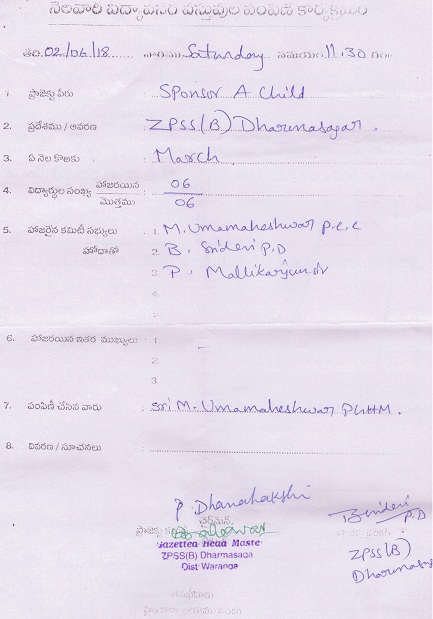 నెలవారీ విద్యా విషయ వస్తువుల పంపిణీ కార్యక్రమం
తేది: 02/06/18 వారము Saturday సమయం: 11.30 గం.
1. ప్రాజెక్టు పేరు : Sponsor A Child
2. ప్రదేశము / ఆవరణ : ZPSS(B) Dharmasagar.
3. ఏ నెల కొఱకు : March
4. విద్యార్థుల సంఖ్య హాజరయిన : 06
మొత్తము 06
5. హాజరైన కమిటీ సభ్యులు : 1. M. Umamaheshwar P.C.C
హోదాతో 2. B. Sridevi P.D
3. P. Mallikarjun
4.
6. హాజరయిన ఇతర ముఖ్యులు : 1
2.
3.
7. పంపిణీ చేసిన వారు : Sri M. Umamaheshwar PGHM.
8. వివరణ / సూచనలు :
P. Dhanalakshmi
చైర్మెన్,
Gazetted Head Maste
ZPSS(B) Dharmasaga
Dist Waranga
P.D
ZPSS(B)